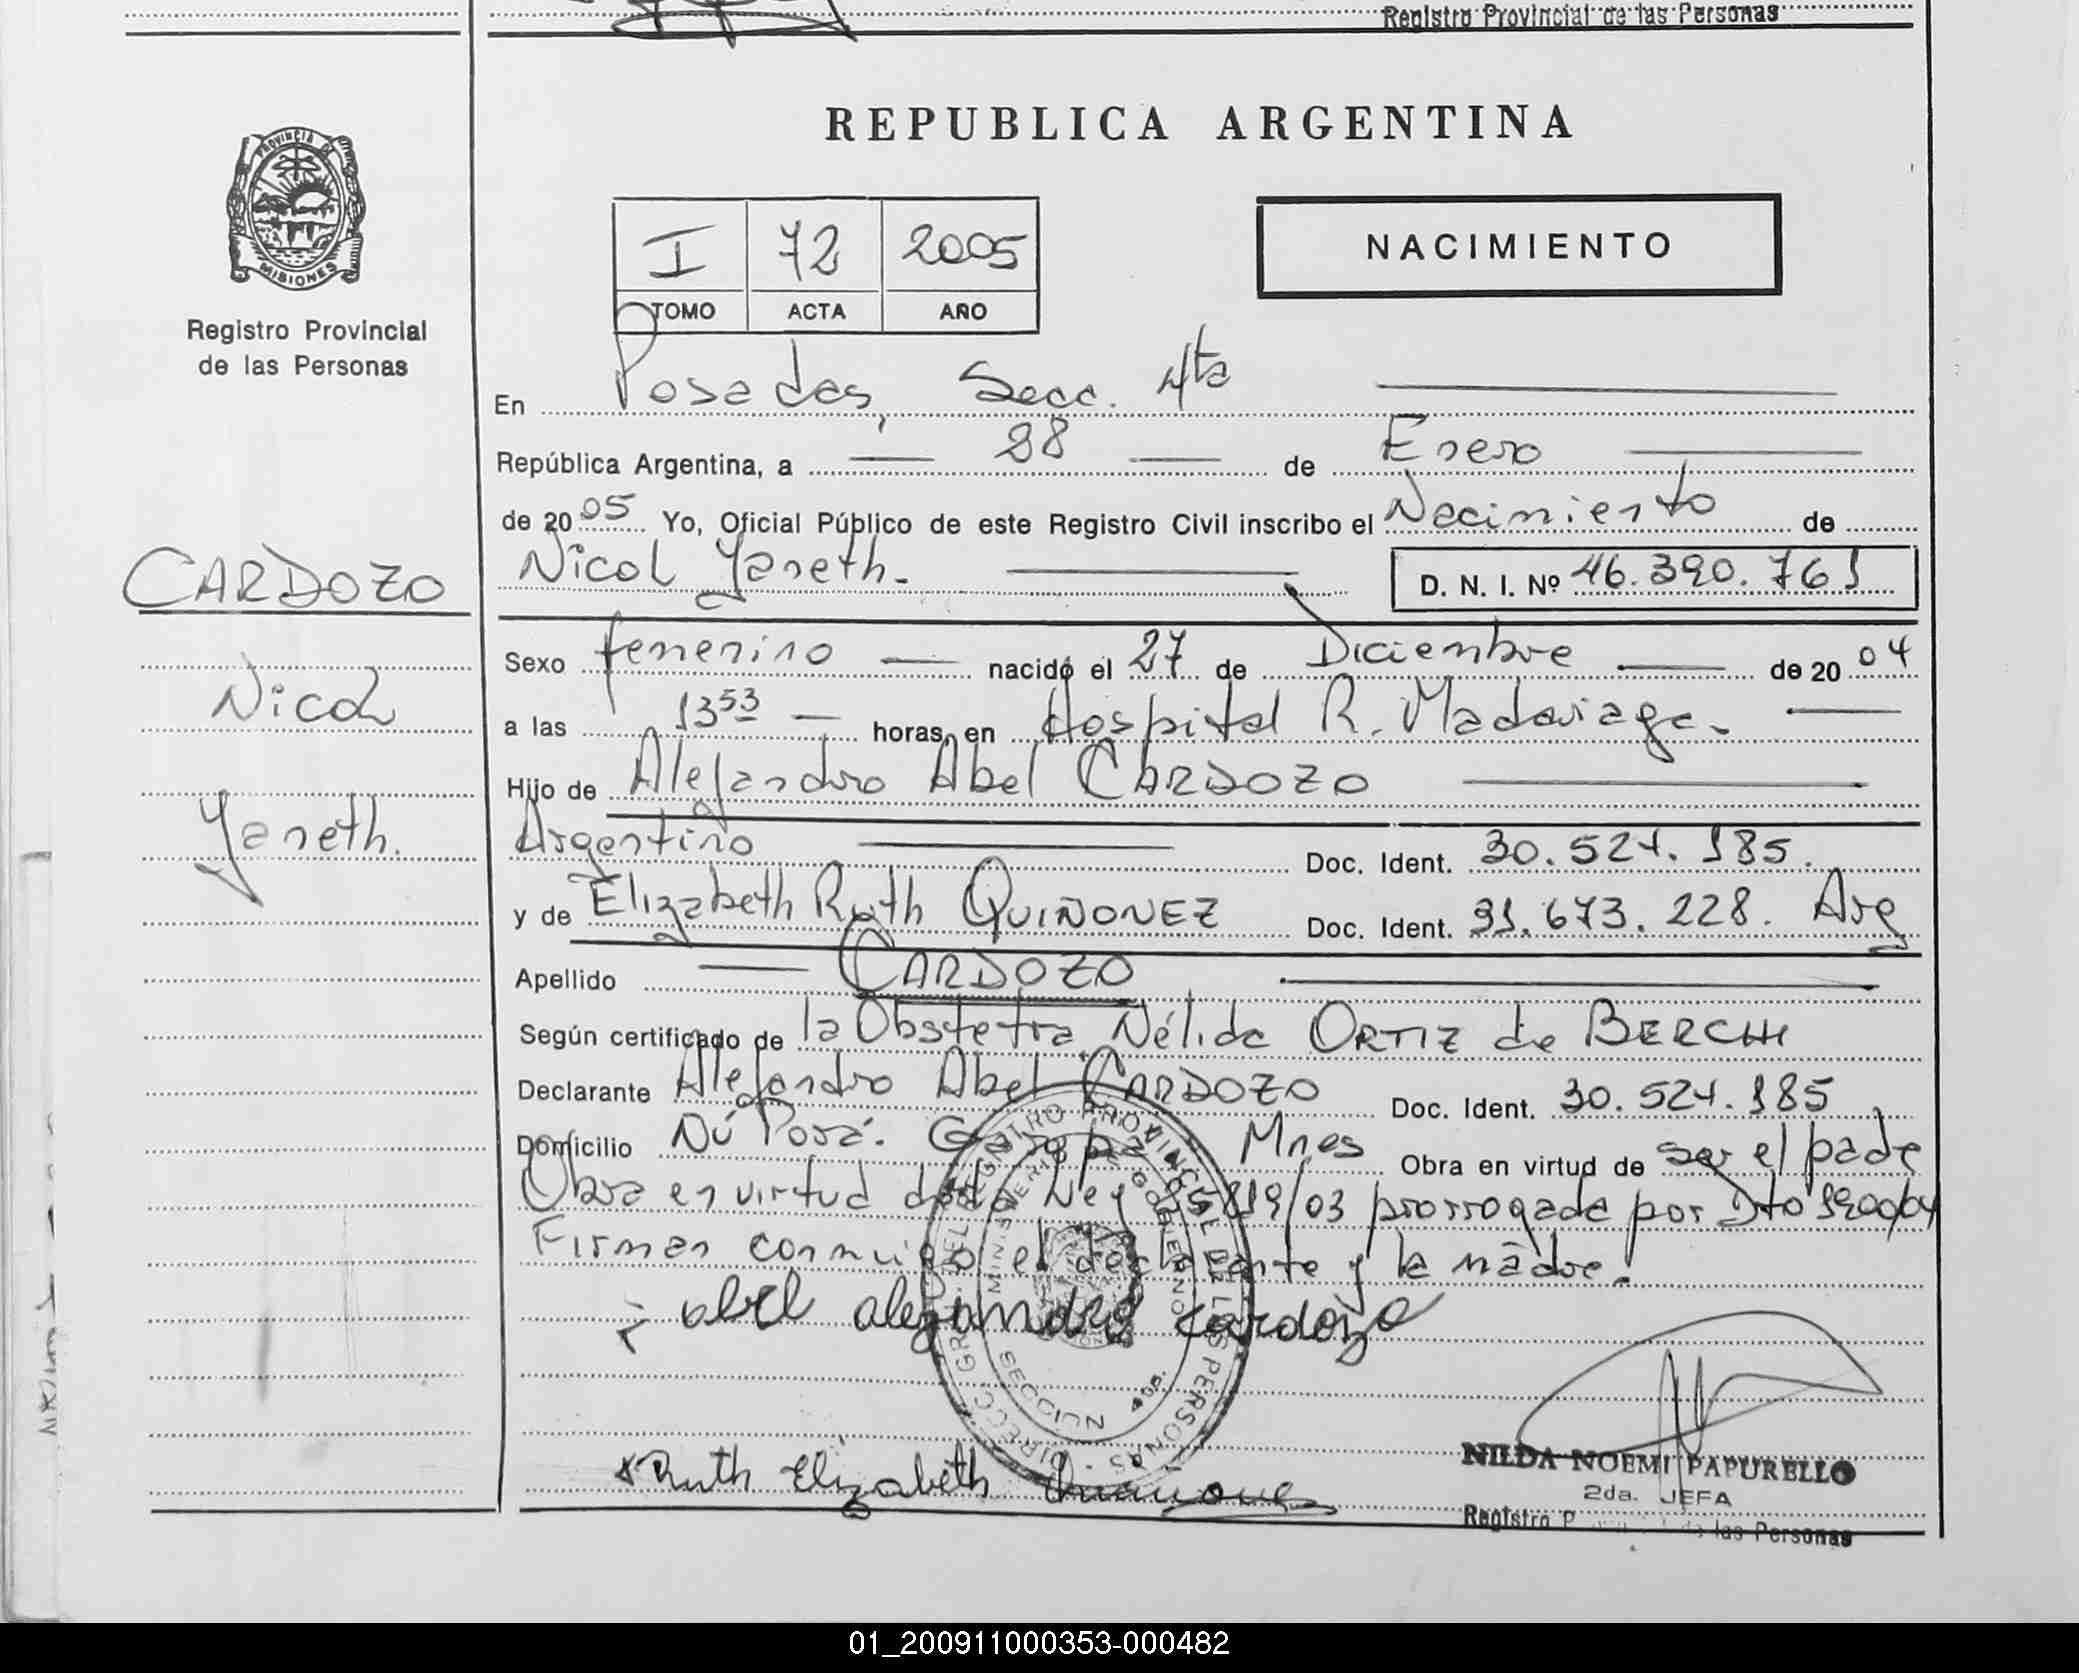 Registro Provincial de las Personas
REPUBLICA ARGENTINA
PROVINCIA DE
MISIONES
Registro Provincial
de las Personas
I 72 2005
TOMO ACTA AÑO
NACIMIENTO
En Posadas, Secc. 4ta
República Argentina, a 28 de Enero
de 2005 Yo, Oficial Público de este Registro Civil inscribo el Nacimiento de
Nicol Yaneth.
D. N. I. Nº 46.390.761
CARDOZO
Nicol
Yaneth.
Sexo femenino nacido el 27 de Diciembre de 2004
a las 13 53 horas, en Hospital R. Madariaga.
Hijo de Alejandro Abel CARDOZO
Argentino Doc. Ident. 30.521.185.
y de Elizabeth Ruth QUIÑONEZ Doc. Ident. 31.673.228. Arg
Apellido CARDOZO
Según certificado de la Obstetra Nélida ORTIZ de BERCHI
Declarante Alejandro Abel CARDOZO Doc. Ident. 30.521.185
Domicilio Nú Porá. Garupá Mnes Obra en virtud de ser el padre
Obra en virtud de la Ley 25819/03 prorrogada por Dto 1900/04
Firman conmigo el declarante y la madre.
abel alejandro cardozo
Ruth Elizabeth Quiñonez
DIRECC GRAL DEL REGISTRO PROVINCIAL DE LAS PERSONAS
MINISTERIO DE GOBIERNO
SECCION 4ta.
NILDA NOEMI PAPURELLO
2da. JEFA
Registro P las Personas
01_200911000353-000482